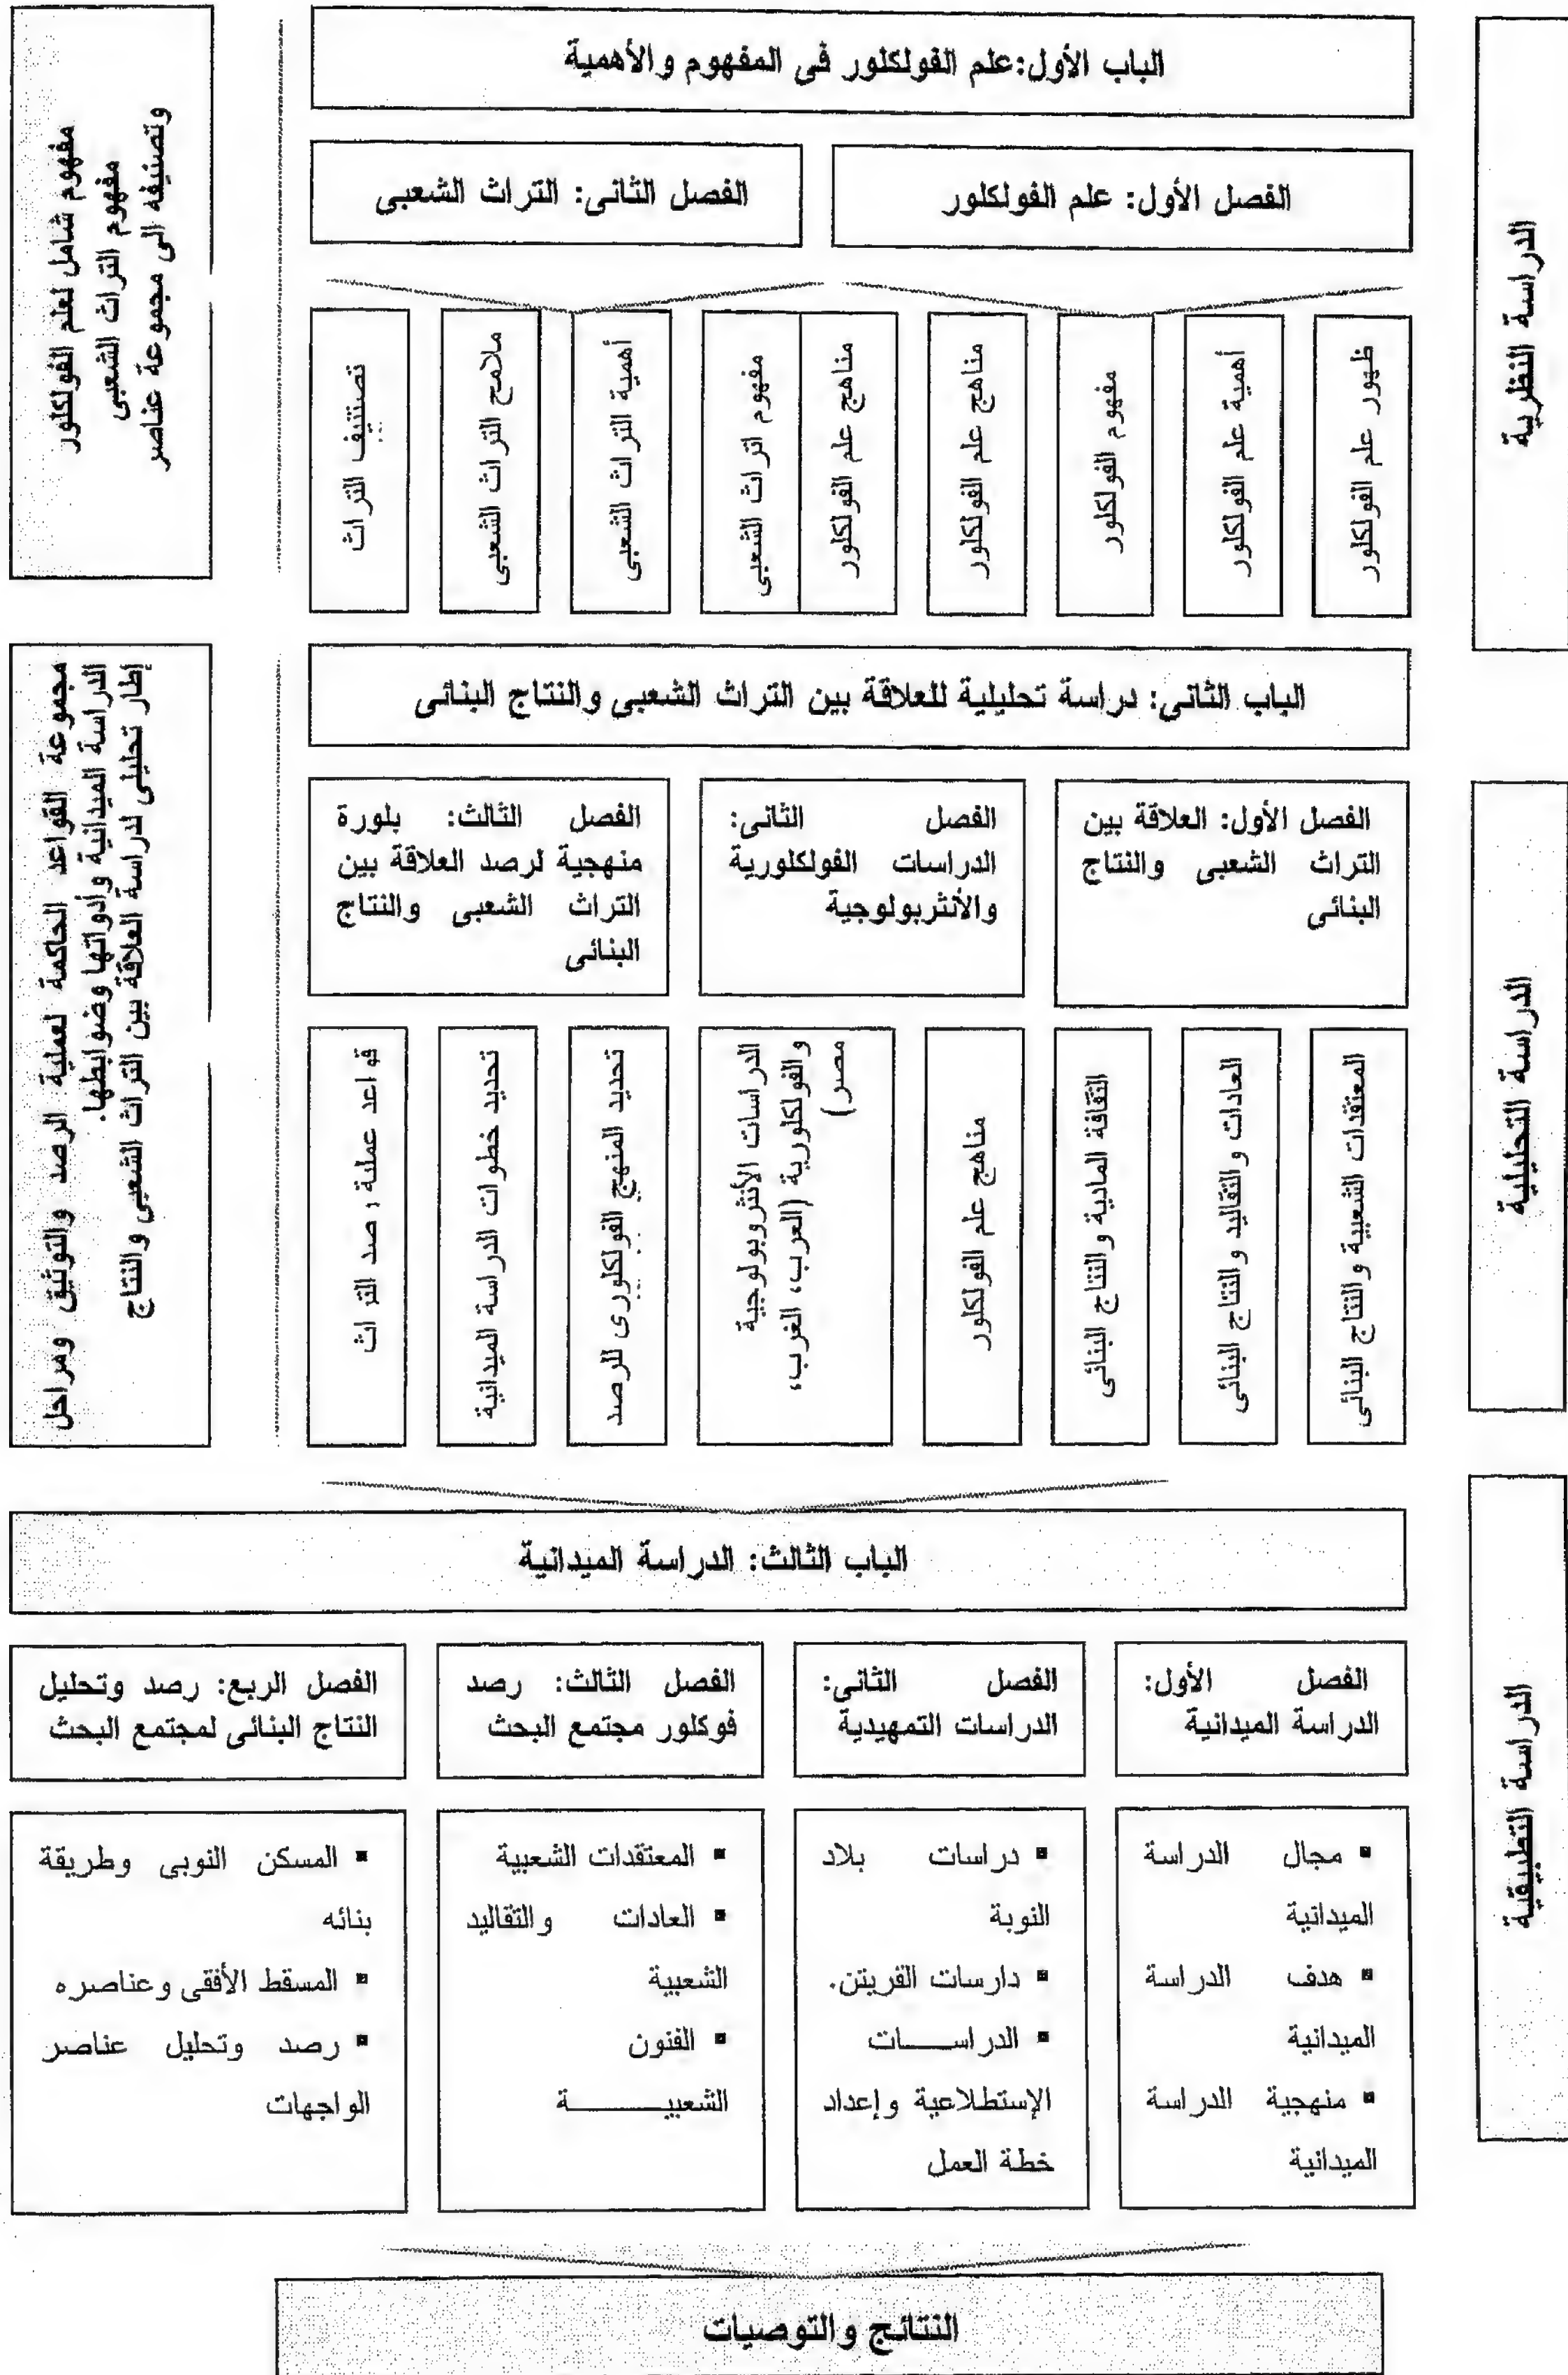 الباب الأول:علم الفولكلور فى المفهوم والأهمية
الفصل الأول: علم الفولكلور
الفصل الثانى: التراث الشعبى
ظهور علم الفولكلور
أهمية علم الفولكلور
مفهوم الفولكلور
مناهج علم الفولكلور
مناهج علم الفولكلور
مفهوم اتراث الشعبى
أهمية التراث الشعبى
ملامح التراث الشعبى
تصنتيف التراث
الدراسة النظرية
مفهوم شامل لعلم الفولكلور
مفهوم التراث الشعبى
وتصنيفه الى مجموعة عناصر
الباب الثانى: دراسة تحليلية للعلاقة بين التراث الشعبى والنتاج البنائى
الفصل الأول: العلاقة بين
التراث الشعبى والنتاج
البنائى
الفصل الثانى:
الدراسات الفولكلورية
والأنثربولوجية
الفصل الثالث: بلورة
منهجية لرصد العلاقة بين
التراث الشعبى والنتاج
البنائى
المعتقدات الشعبية والنتاج البنائى
العادات والتقاليد والنتاج البنائى
الثقافة المادية والنتاج البنائى
مناهج علم الفولكلور
الدراسات الأنثروبولوجية
والفولكلورية (العرب، الغرب،
مصر)
تحديد المنهج الفولكلورى للرصد
تحديد خطوات الدراسة الميدانية
قواعد عملية رصد التراث
الدراسة التحليلية
مجموعة القواعد الحاكمة لعملية الرصد والتوثيق ومراحل
الدراسة الميدانية وأدواتها وضوابطها.
إطار تحليلى لدراسة العلاقة بين التراث الشعبى والنتاج
الباب الثالث: الدراسة الميدانية
الفصل الأول:
الدراسة الميدانية
الفصل الثانى:
الدراسات التمهيدية
الفصل الثالث: رصد
فوكلور مجتمع البحث
الفصل الربع: رصد وتحليل
النتاج البنائى لمجتمع البحث
▪ مجال الدراسة
الميدانية
▪ هدف الدراسة
الميدانية
▪ منهجية الدراسة
الميدانية
▪ دراسات بلاد
النوبة
▪ دارسات القريتن.
▪ الدراســـات
الإستطلاعية وإعداد
خطة العمل
▪ المعتقدات الشعبية
▪ العادات والتقاليد
الشعبية
▪ الفنون
الشعبيـــــــة
▪ المسكن النوبى وطريقة
بنائه
▪ المسقط الأفقى وعناصره
▪ رصد وتحليل عناصر
الواجهات
الدراسة التطبيقية
النتائج والتوصيات